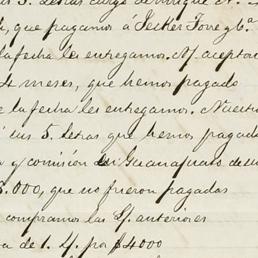 sus 5. letras cargo de Enrique
que pagamos á Jecker Torre y Cª.
la fecha le entregamos. N/ aceptac
4 meses, que hemos pagado
e la fecha le entregamos. Nuestra
sus 5. letras que hemos pagado
y comisión en Guanajuato de
3.000, que no fueron pagadas
compramos las L/. anteriores
a de 1. L/. por $4000